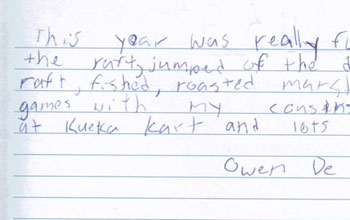 This year was really fu
the raft, jumped of the d
raft, fished, roasted marsh
games with my cousins
at Kueka Kart and lots
Owen De